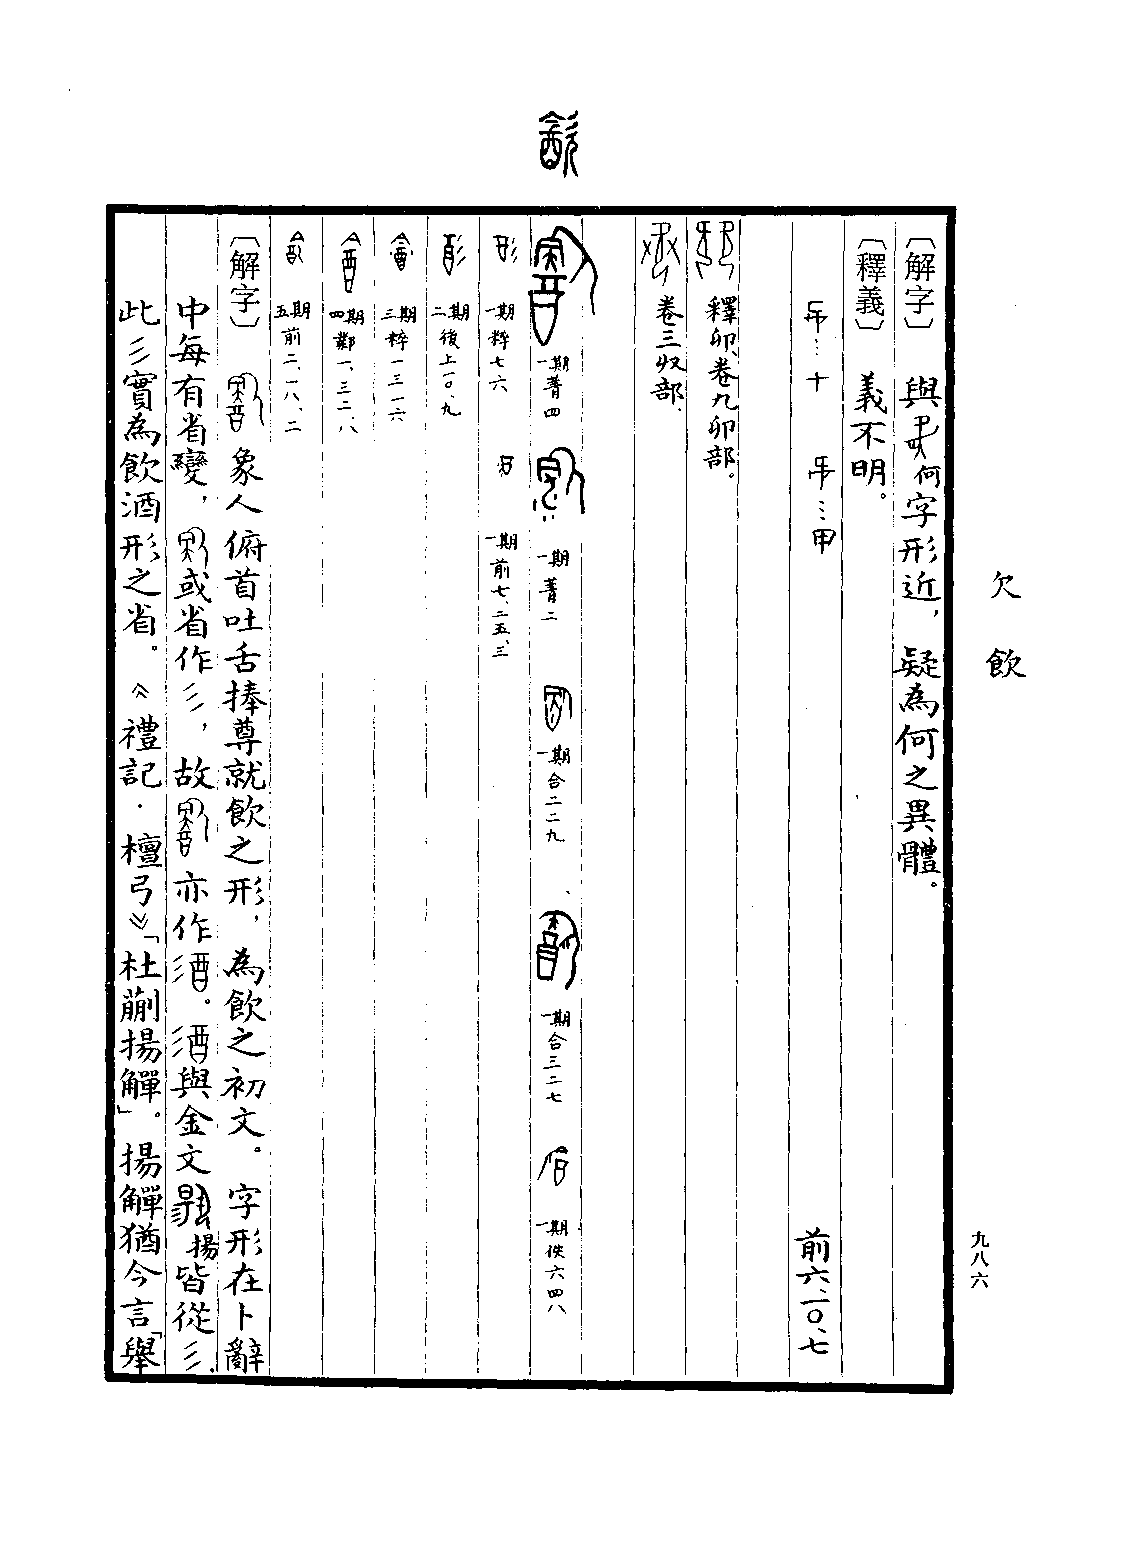 欠 飲
九八六
〔解字〕 與何字形近，疑為何之異體。
〔釋義〕 義不明。
十 甲 前六·一〇·七
釋卯，卷九卯部。
卷三収部。
一期菁四 一期菁二 一期合二二九 一期合三二七 一期佚六四八
一期粹七六 一期前七、二五、三
二期後上一〇、九
三期粹一三一六
四期鄴一、三二、八
五期前二、一八、二
〔解字〕 象人俯首吐舌捧尊就飲之形，為飲之初文。字形在卜辭
中每有省變，或省作彡，故亦作酒。酒與金文揚皆從彡，
此彡實為飲酒形之省。《禮記·檀弓》「杜蕢揚觶」。揚觶猶今言「舉